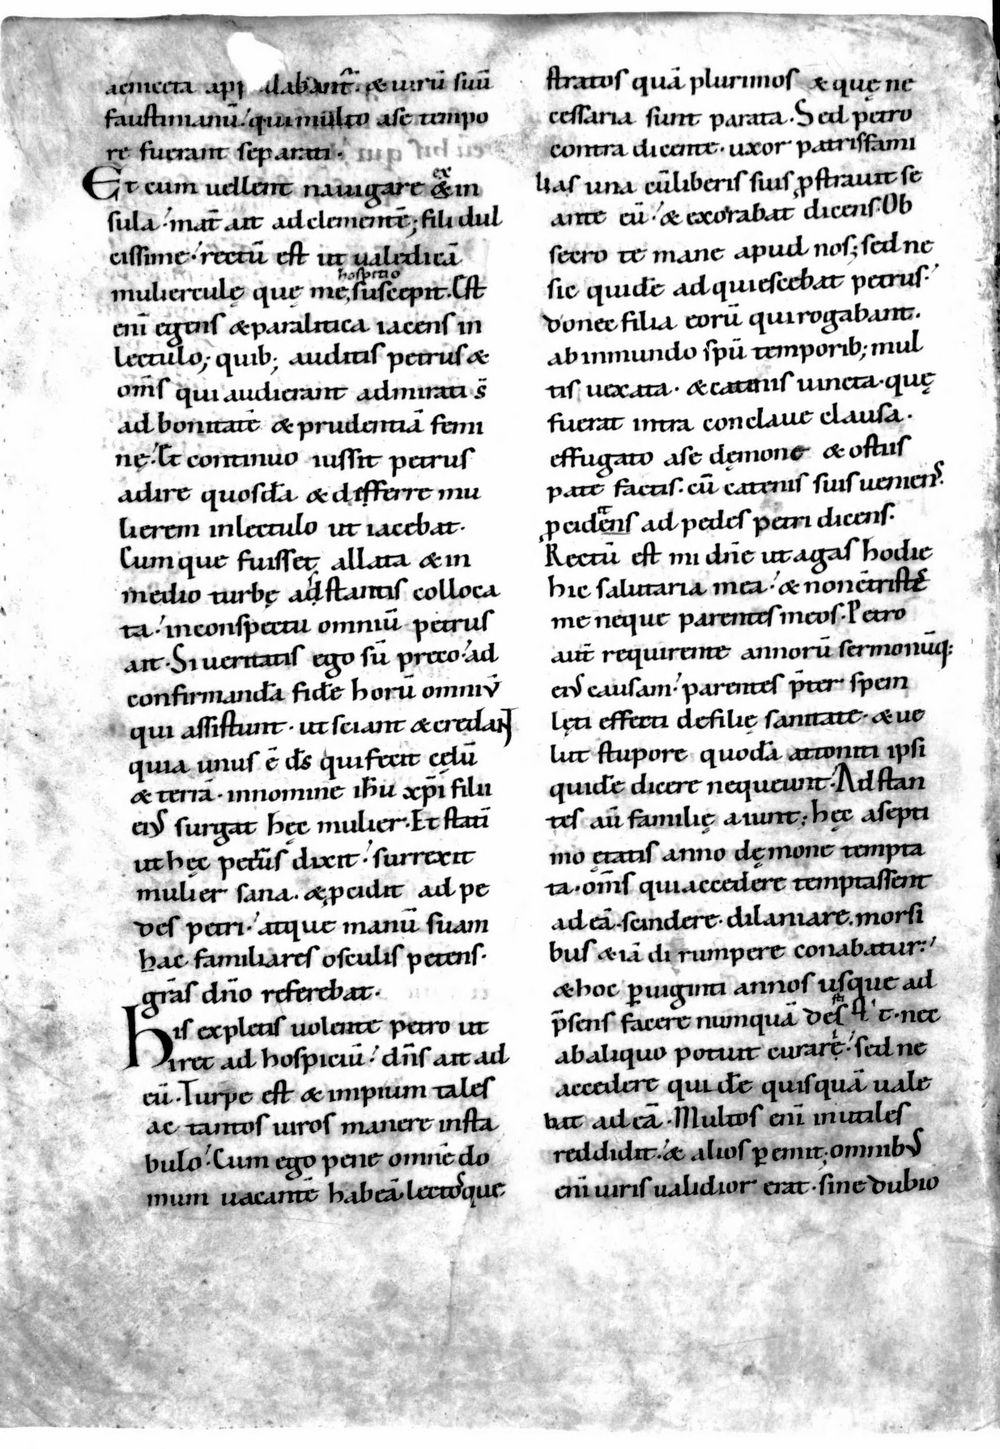 aemecta api dabantr̄. & uirū suū
faustinianū.' qui multo a se tempo
re fuerant separati.
Et cum uellent nauigare ex & in
sula.' mat̄ ait ad clementē; fili dul
cissime.' rectū est ut ualedicā
mulierculę quę me, hospitio suscepit. Est
eni̅ egens & paralitica iacens in
lectulo; quib; auditis petrus &
om̄s qui audierant admirati s̄
ad bonitatē & prudentiā femi
nę. Et continuo iussit petrus
adire quosdā & differre mu
lierem in lectulo ut iacebat.
Cumque fuisset allata & in
medio turbę adstantis colloca
ta.' in conspectu omniū petrus
ait. Si ueritatis ego sū preco.' ad
confirmandā fidē horū omniū
qui assistunt. ut sciant & credant
quia unus ē d̄s qui fecit cęlū
& terrā. in nomine ihū xp̄i filii
eius surgat hęc mulier. Et statī
ut hęc petrus dixit.' surrexit
mulier sana. & ꝓcidit ad pe
des petri.' atque manū suam
hac familiares osculis petens.
grās dn̄o referebat.
His expletis uolente petro ut
iret ad hospiciū.' dn̄s ait ad
eū. Turpe est & impium tales
ac tantos uiros manere in sta
bulo.' Cum ego pene omnē do
mum uacantē habeā lectosque
stratos quā plurimos & quę ne
cessaria sunt parata. Sed petro
contra dicente. uxor patrisfami
lias una cū liberis suis ꝓstrauit se
ante eū.' & exorabat dicens. Ob
secro te mane apud nos; sed ne
sic quidē adquiescebat petrus.'
donec filia eorū qui rogabant.
ab inmundo sp̄u temporib; mul
tis uexata. & catenis uincta. quę
fuerat intra conclaue clausa.
effugato a se dęmone & ostiis
patefactis. cū catenis suis ueniens.
ꝓcidens ad pedes petri dicens.
Rectū est mi dn̄e ut agas hodie
hic salutaria mea.' & non cōtristē
me neque parentes meos. Petro
aut̄ requirente annorū sermonūq:
eius causam.' parentes p̄ter spem
lęti effecti de filię sanitate. & ue
lut stupore quodā attoniti ipsi
quidē dicere nequeunt. Adstan
tes aū familię aiunt; hęc a septi
mo ętatis anno dęmone tempta
ta. om̄s qui accedere temptassent
ad eā. scindere. dilaniare. morsi
bus & iā dirumpere conabatur.'
& hoc ꝑ uiginti annos usque ad
p̄sens facere numquā nec
ab aliquo potuit curare.' sed ne
accedere quidē quisquā uale
bat ad eā. Multos eni̅ inutales
reddidit.' & alios ꝑemit; omnibus
eni̅ uiris ualidior erat. sine dubio